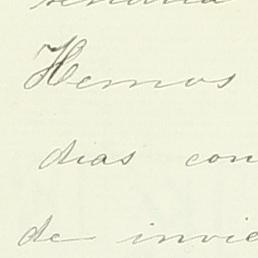 Hemos
dias con
de invie